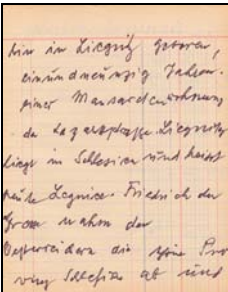 bin in Liegnitz geboren,
einundneunzig Jahren.
einer Mansardenwohnung
da Lazarettstraße. Liegnitz
liegt in Schlesien und heisst
heute Legnica. Friedrich der
Grosse nahm den
Oesterreichern die Pro
vinz Schlesien ab und